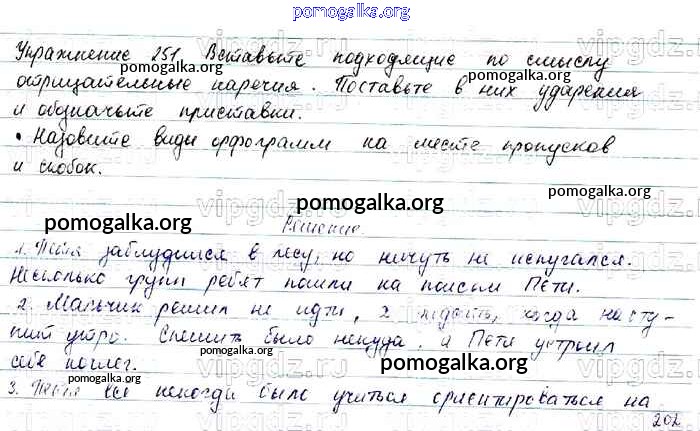 pomogalka.org
Упражнение 251. Вставьте подходящие по смыслу
pomogalka.org pomogalka.org
отрицательные наречия. Поставьте в них ударения
и обозначьте приставки.
pomogalka.org
• Назовите виды орфограмм на месте пропусков
и скобок.
pomogalka.org
pomogalka.org
pomogalka.org
Решение
1. Петя заблудился в лесу, но ничуть не испугался.
pomogalka.org pomogalka.org
Несколько групп ребят пошли на поиски Пети.
2. Мальчик решил не идти, а подождать, когда насту-
пит утро. Спешить было некуда, и Петя устроил
pomogalka.org pomogalka.org
себе ночлег.
pomogalka.org
3. Петя некогда было учиться ориентироваться на
202